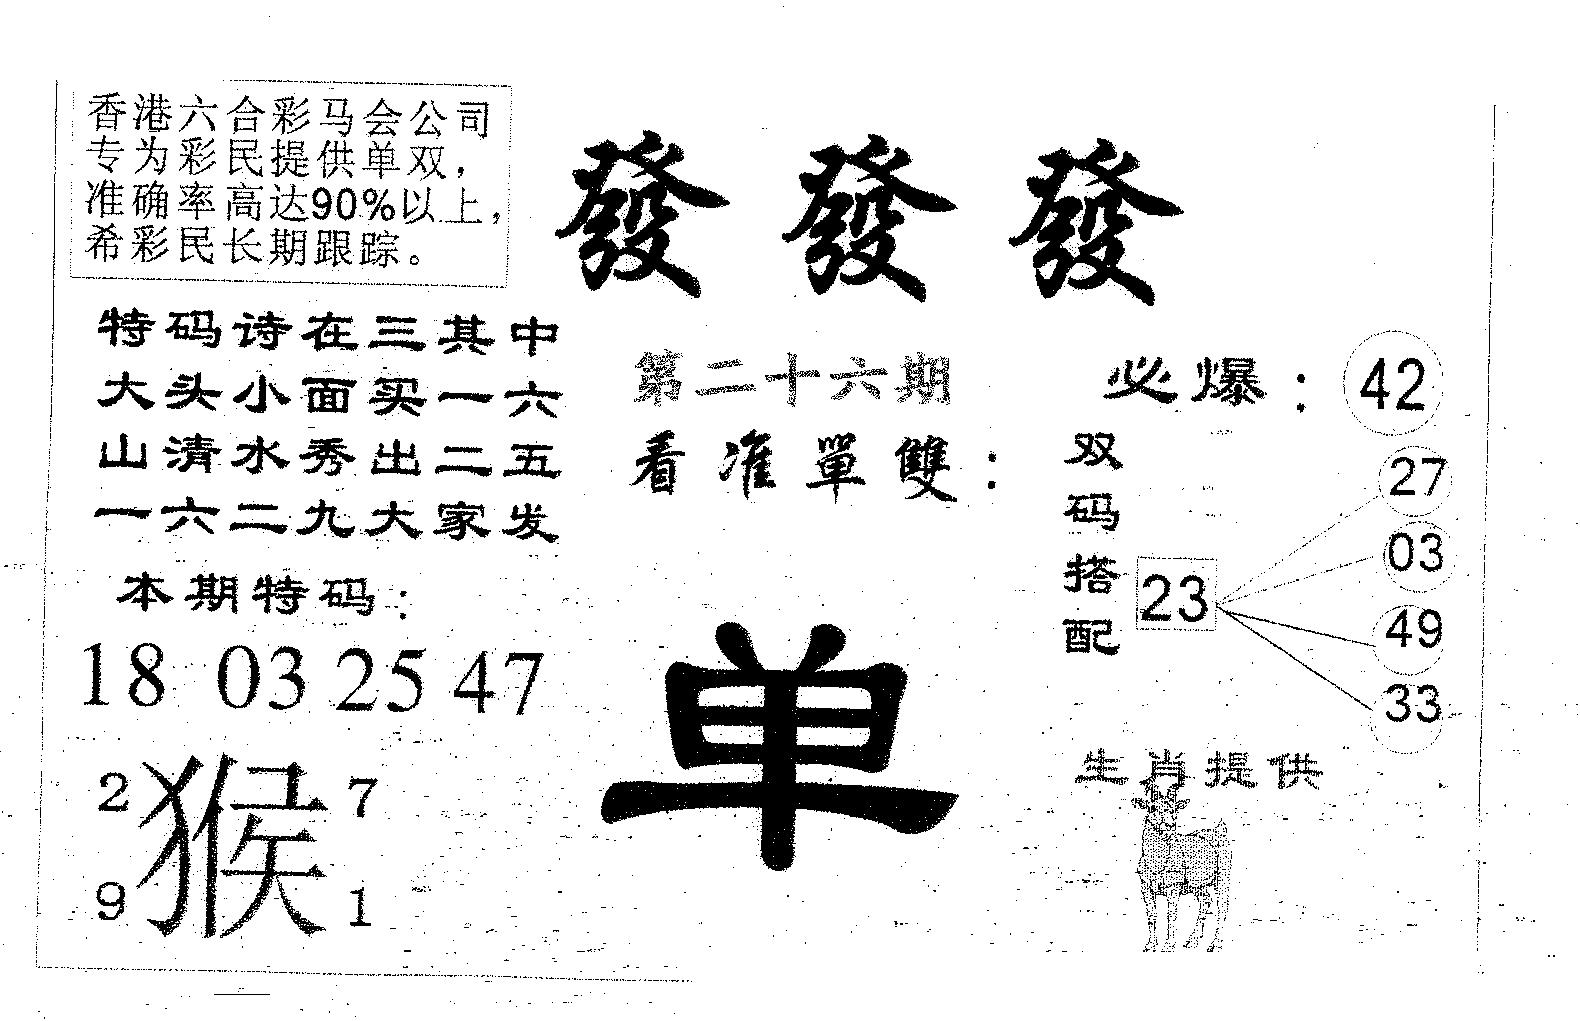 香港六合彩马会公司
专为彩民提供单双，
准确率高达90%以上，
希彩民长期跟踪。
發 發 發
特码诗在三其中
大头小面买一六
山清水秀出二五
一六二九大家发
本期特码：
18 03 25 47
2 猴 7
9 1
第二十六期
看准單雙：
单
必爆：42
双码搭配
23
27
03
49
33
生肖提供